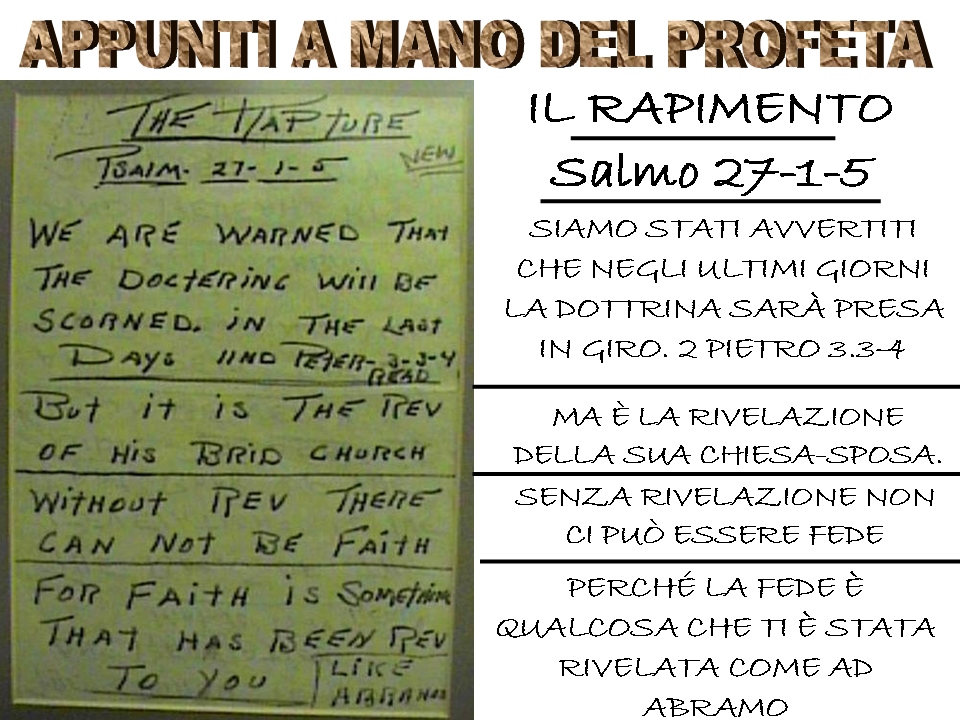 APPUNTI A MANO DEL PROFETA
THE RAPTURE
PSAlM- 27-1-5
NEW
WE ARE WARNED THAT
THE DOCTERING Will BE
SCORNED. iN THE LAST
DAYS IIND PETER-3-3-4
READ
But it is THE REV
OF His BRID CHURCH
WitHout REV THERE
CAN Not BE FAitH
FOR FAITH is SOMETHING
THAT HAS BEEN REV
TO YOU
LIKE
IL RAPIMENTO
Salmo 27-1-5
SIAMO STATI AVVERTITI
CHE NEGLI ULTIMI GIORNI
LA DOTTRINA SARÀ PRESA
IN GIRO. 2 PIETRO 3.3-4
MA È LA RIVELAZIONE
DELLA SUA CHIESA-SPOSA.
SENZA RIVELAZIONE NON
CI PUÒ ESSERE FEDE
PERCHÉ LA FEDE È
QUALCOSA CHE TI È STATA
RIVELATA COME AD
ABRAMO